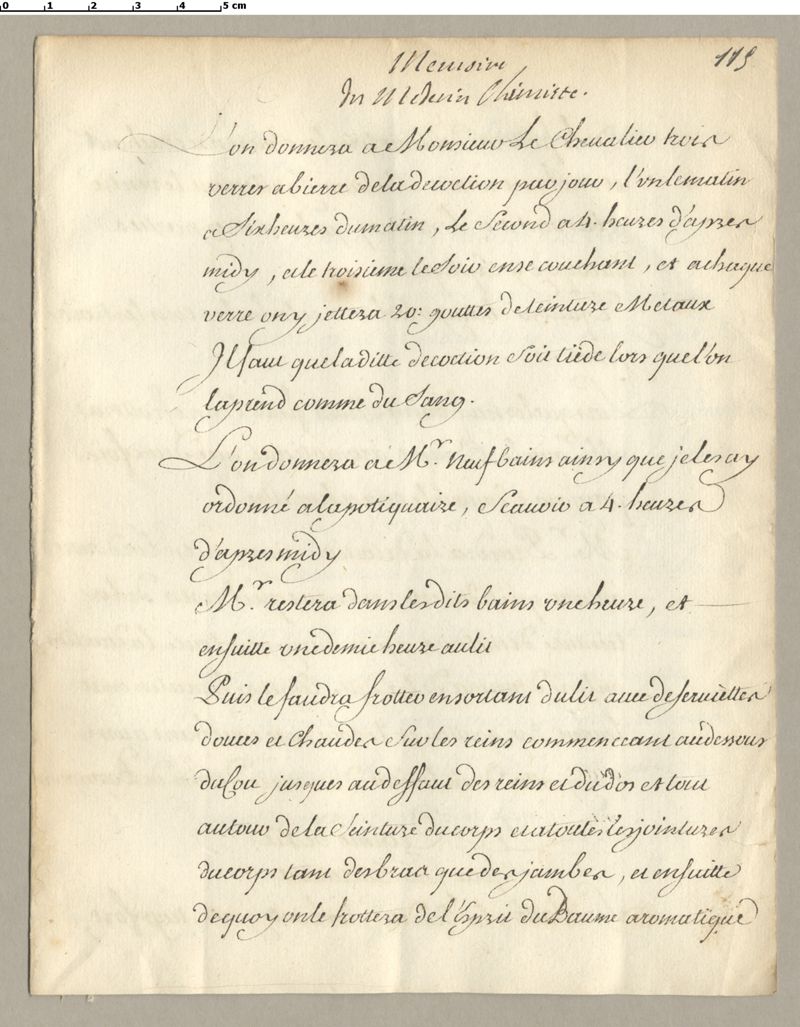 0 1 2 3 4 5 cm
119
Memoire
du Medecin Chimiste.
L'on donnera a Monsieur Le Chevalier trois
verres a bierre de la decoction par jour, l'un le matin
a Six heures du matin, Le Second a 4. heures d'apres
midy, et le troisieme le Soir en se couchant, et a chaque
verre on y jettera 20: gouttes de teinture Metaux
Il faut que la ditte decoction Soit tiede lors que l'on
la prend comme du Sang.
L'on donnera a Mr. Neuf bains ainsy que je les ay
ordonné a lapotiquaire, Scauoir a 4. heures
d'apres midy
Mr. restera dans les dits bains vne heure, et
ensuitte vne demie heure au lit
Puis le faudra frotter en sortant du lit auec de seruiettes
douces et Chaudes Sur les reins commenceant au dessous
du Cou jusques au deffaut des reins et du dos et tout
autour de la Seinture du corps et a toutes les jointures
du corps tant des bras que des jambes, et ensuitte
de quoy on le frottera de l'Esprit du Baume aromatique